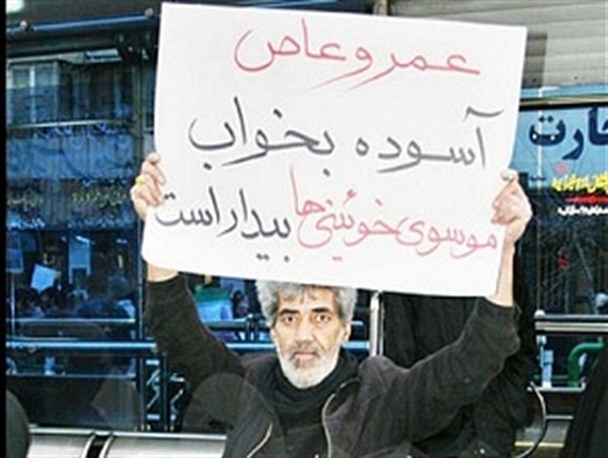 عمرو عاص
آسوده بخواب
موسوی خوئینی‌ها
بیدار است